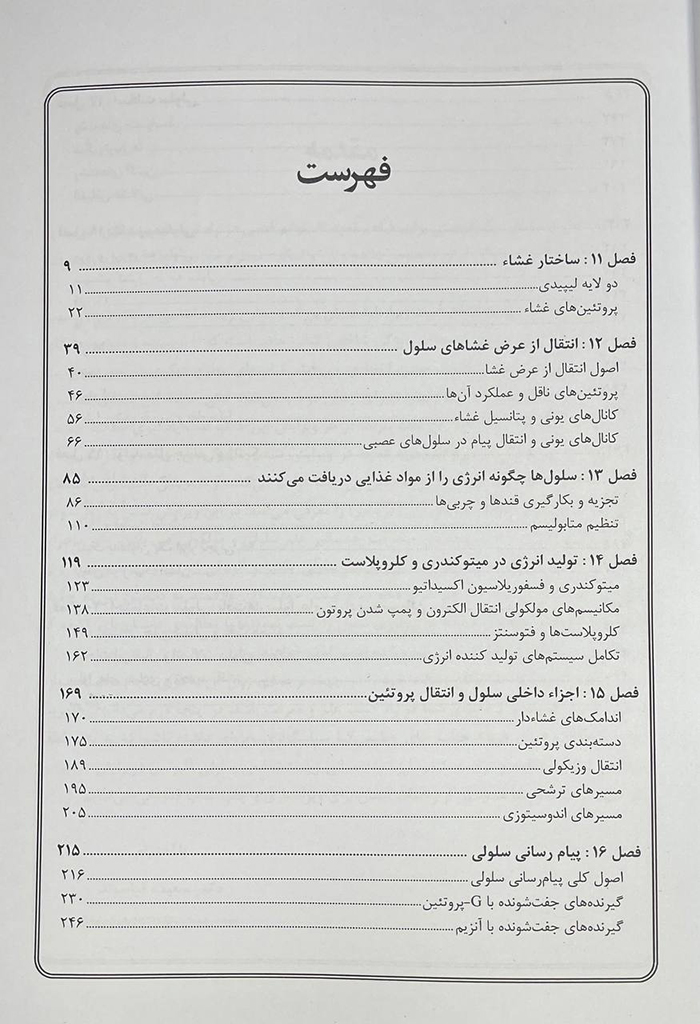 فهرست
فصل ۱۱ : ساختار غشاء ........ ۹
دو لایه لیپیدی ........ ۱۱
پروتئین‌های غشاء ........ ۲۲
فصل ۱۲ : انتقال از عرض غشاهای سلول ........ ۳۹
اصول انتقال از عرض غشا ........ ۴۰
پروتئین‌های ناقل و عملکرد آن‌ها ........ ۴۶
کانال‌های یونی و پتانسیل غشاء ........ ۵۶
کانال‌های یونی و انتقال پیام در سلول‌های عصبی ........ ۶۶
فصل ۱۳ : سلول‌ها چگونه انرژی را از مواد غذایی دریافت می‌کنند ........ ۸۵
تجزیه و بکارگیری قندها و چربی‌ها ........ ۸۶
تنظیم متابولیسم ........ ۱۱۰
فصل ۱۴ : تولید انرژی در میتوکندری و کلروپلاست ........ ۱۱۹
میتوکندری و فسفوریلاسیون اکسیداتیو ........ ۱۲۳
مکانیسم‌های مولکولی انتقال الکترون و پمپ شدن پروتون ........ ۱۳۸
کلروپلاست‌ها و فتوسنتز ........ ۱۴۹
تکامل سیستم‌های تولید کننده انرژی ........ ۱۶۲
فصل ۱۵ : اجزاء داخلی سلول و انتقال پروتئین ........ ۱۶۹
اندامک‌های غشاءدار ........ ۱۷۰
دسته‌بندی پروتئین ........ ۱۷۵
انتقال وزیکولی ........ ۱۸۹
مسیرهای ترشحی ........ ۱۹۵
مسیرهای اندوسیتوزی ........ ۲۰۵
فصل ۱۶ : پیام رسانی سلولی ........ ۲۱۵
اصول کلی پیام‌رسانی سلولی ........ ۲۱۶
گیرنده‌های جفت‌شونده با G-پروتئین ........ ۲۳۰
گیرنده‌های جفت‌شونده با آنزیم ........ ۲۴۶